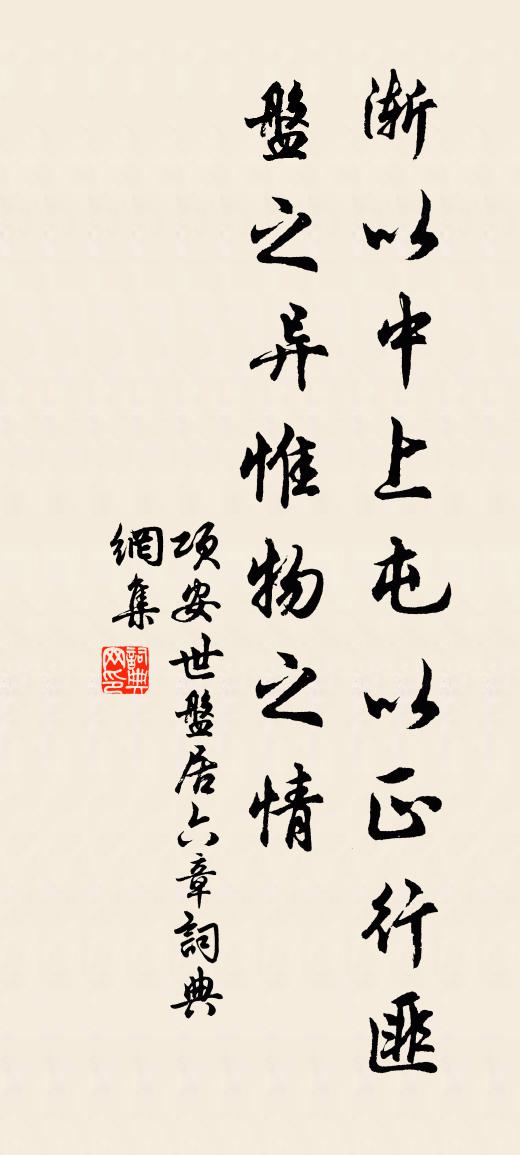 渐以中上屯以正行匪
盤之异惟物之情
项安世盤居六章詞典
網集
詞典
网印